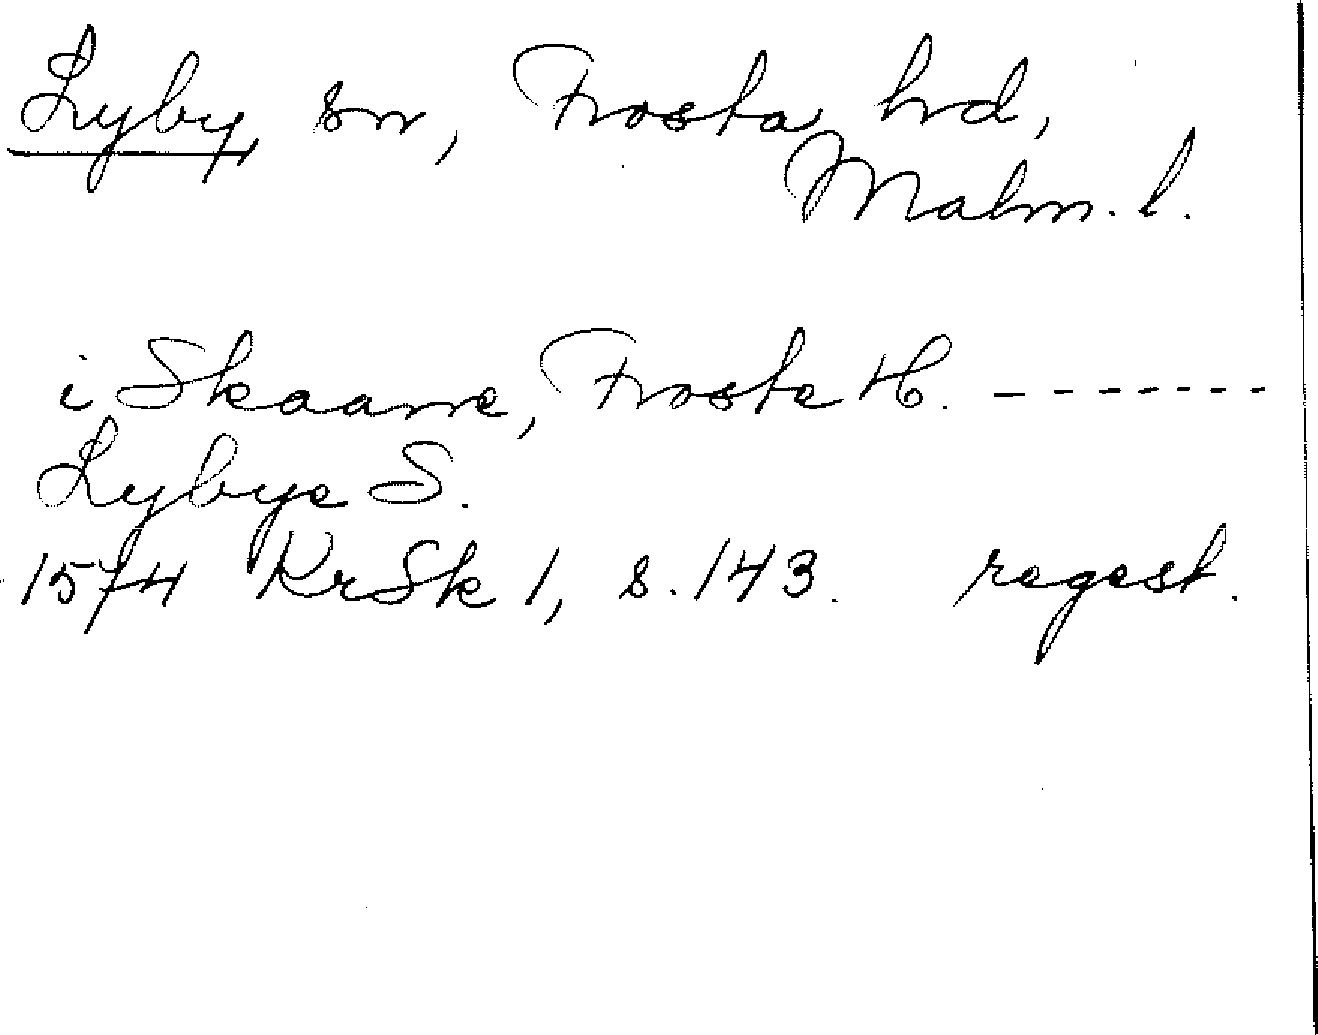 Lyby, sn, Frosta hd,
Malm. l.
i Skaane, Froste H. - - - - - - -
Lybye S.
1574 KrSk 1, s. 143. regest.